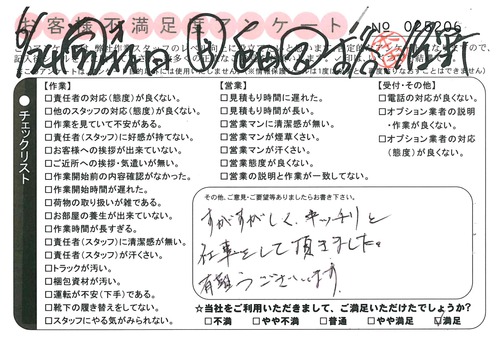 お客様不満足度アンケート
NO 025206
チェックリスト
【作業】
□責任者の対応(態度)が良くない。
□他のスタッフの対応(態度)が良くない。
□作業を見ていて不安がある。
□責任者(スタッフ)に好感が持てない。
□お客様への挨拶が出来ていない。
□ご近所への挨拶・気遣いが無い。
□作業開始前の内容確認がなかった。
□作業開始時間が遅れた。
□荷物の取り扱いが雑である。
□お部屋の養生が出来ていない。
□作業時間が長すぎる。
□責任者(スタッフ)に清潔感が無い。
□責任者(スタッフ)が汗くさい。
□トラックが汚い。
□梱包資材が汚い。
□運転が不安(下手)である。
□靴下の履き替えをしてない。
□スタッフにやる気がみられない。
【営業】
□見積もり時間に遅れた。
□見積もり時間が長い。
□営業マンに清潔感が無い。
□営業マンが煙草くさい。
□営業マンが汗くさい。
□営業態度が良くない。
□営業の説明と作業が一致してない。
【受付・その他】
□電話の対応が良くない。
□オプション業者の説明
・作業が良くない。
□オプション業者の対応
(態度)が良くない。
その他、ご意見・ご要望等ありましたらお書き下さい。
すがすがしく、キッチリと
仕事をして頂きました。
有難うございます。
☆当社をご利用いただきまして、ご満足いただけたでしょうか?
□不満 □やや不満 □普通 □やや満足 ☑満足